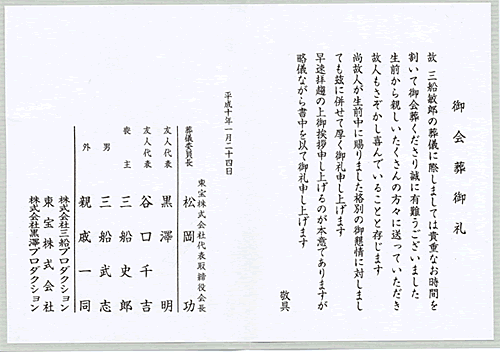 御会葬御礼
故 三船敏郎の葬儀に際しましては貴重なお時間を
割いて御会葬くださり誠に有難うございました
生前から親しいたくさんの方々に送っていただき
故人もさぞかし喜んでいることと存じます
尚故人が生前中に賜りました格別の御懇情に対しまし
ても玆に併せて厚く御礼申し上げます
早速拝趨の上御挨拶申し上げるのが本意でありますが
略儀ながら書中を以て御礼申し上げます
敬具
平成十年一月二十四日
東宝株式会社代表取締役会長
葬儀委員長 松岡功
友人代表 黒澤明
友人代表 谷口千吉
喪主 三船史郎
男 三船武志
外 親戚一同
株式会社三船プロダクション
東宝株式会社
株式会社黒澤プロダクション